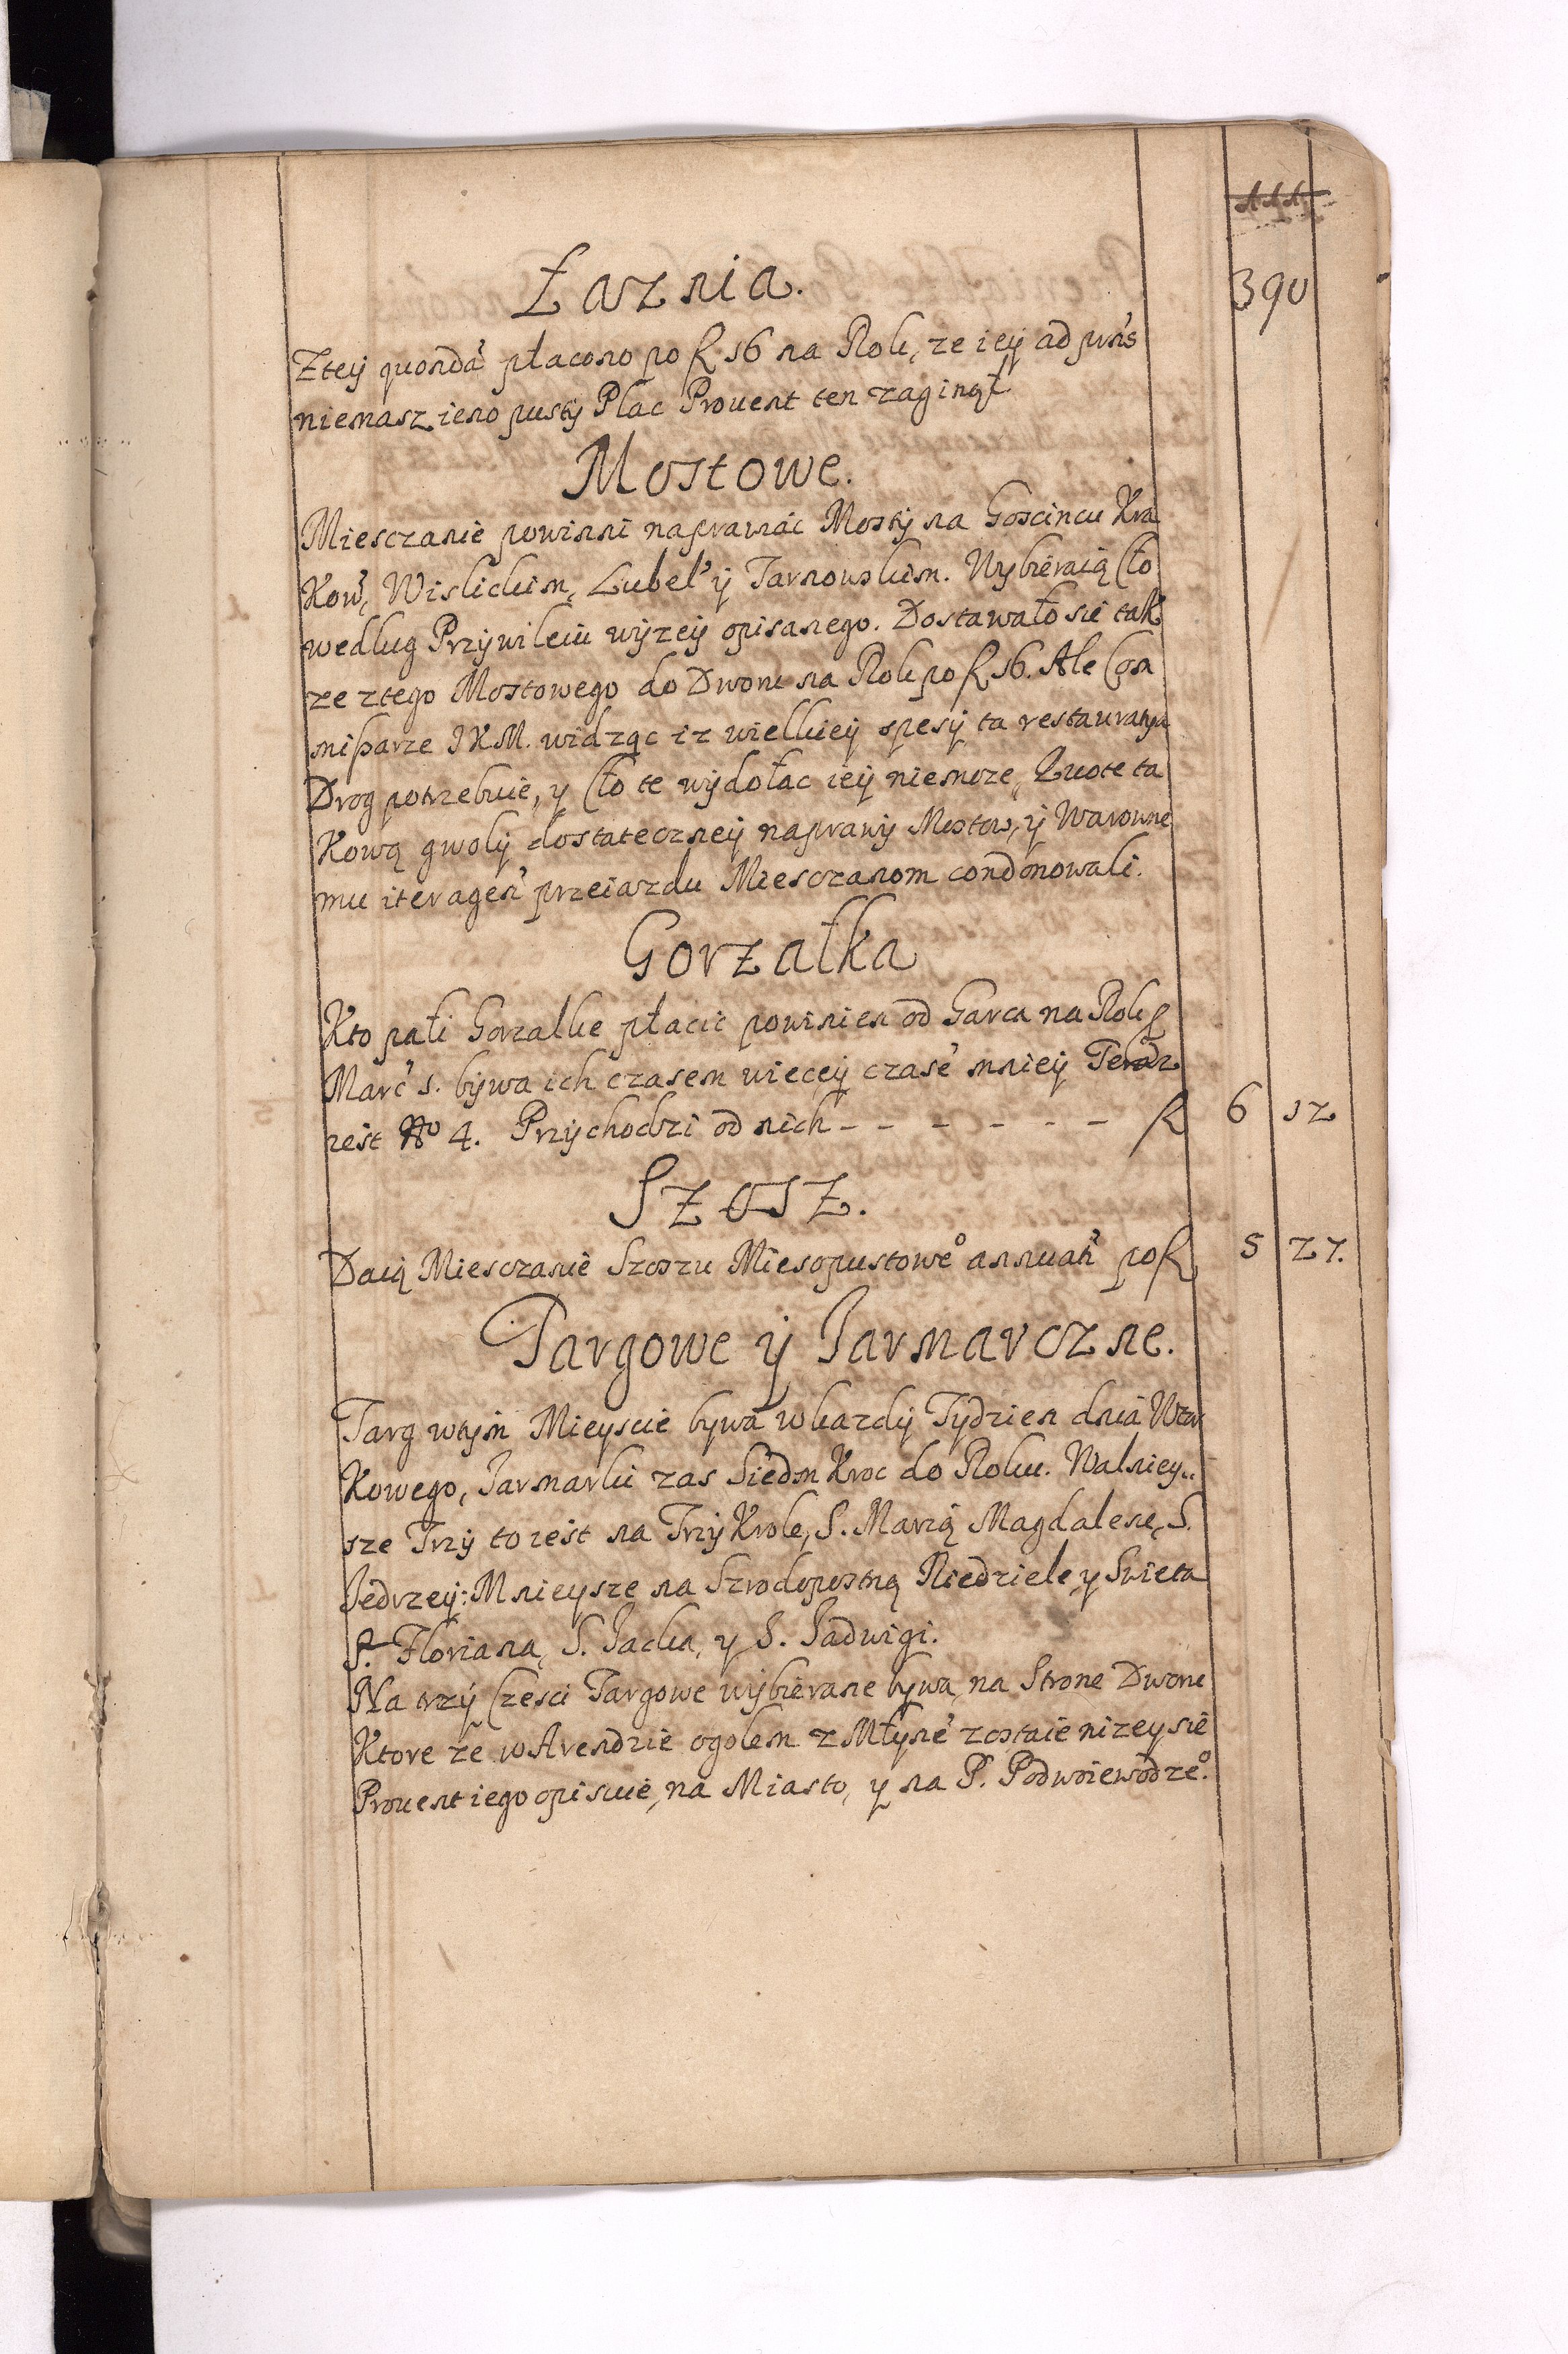 390
Łaznia.
Ztey quondã płacono po f 16 na Rok, ze iey ad prńs
niemasz ieno pusty Plac Prouent ten zaginął
Mostowe.
Miesczanie powinni naprawiac Mosty na Goscincu Kra
Kow̃, Wislickim, Lubel̃ y Tarnowskim. Wybieraią Cło
według Przywileiu wyzey opisanego. Dostawało sie tak
ze ztego Mostowego do Dworu na Rok po f 16. Ale Con
mißarze JKM. widząc iz wielkiey spesy ta restauratya
Drog potrzebuie, y Cło te wydołac iey niemoze, Quote ta
Kową gwoly dostateczney naprawy Mostow, y Warowne
mu iteragen̄ przeiazdu Miesczanom condonowali.
Gorzałka
Kto pali Gorzalke płacic powinien od Garca na Rok p
Marc̃ 1. bywa ich czasem wiecey czasẽ mniey Teraz
iest No 4. Przychodzi od nich - - - - - - f 6 12
Szosz.
Daią Miesczanie Szoszu Miesopustoweo annuat̃ po f 5 27.
Targowe y Jarmarczne.
Targ wtym Mieyscie bywa w kazdy Tydzien dnia Wtor
Kowego, Jarmarki zas Siedm Kroc do Roku. Walniey..
sze Trzy to iest na Trzy Krole, S. Marią Magdalenę, S.
Jedrzey: Mnieysze na Szrodopostną Niedziele, y Swieta
S. Floriana, S. Jacka, y S. Jadwigi.
Na trzy Czesci Targowe wybierane bywa, na Strone Dworu
Ktore ze w Arendzie ogolem z Młynẽ zostaie nizey sie
Prouent iego opisuie, na Miasto, y na P. Podwoiewodzeo.